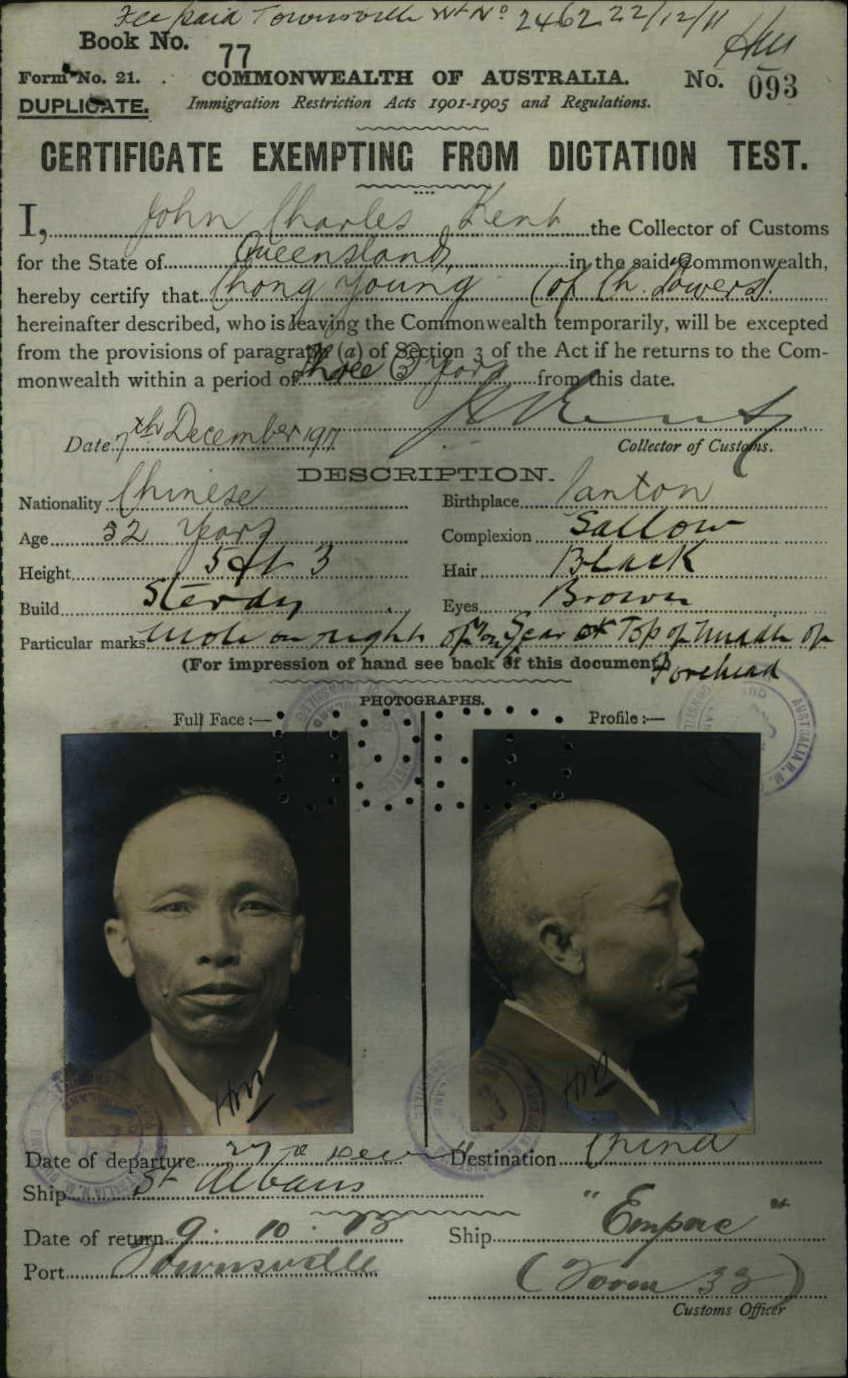 Fee paid Townsville Wt No 2462 22/12/11
Book No. 77
Form No. 21.
COMMONWEALTH OF AUSTRALIA.
No. 093
DUPLICATE.
Immigration Restriction Acts 1901-1905 and Regulations.
CERTIFICATE EXEMPTING FROM DICTATION TEST.
I, John Charles Kent the Collector of Customs
for the State of Queensland in the said Commonwealth,
hereby certify that Chong Young (of Ch. Towers)
hereinafter described, who is leaving the Commonwealth temporarily, will be excepted
from the provisions of paragraph (a) of Section 3 of the Act if he returns to the Com-
monwealth within a period of three (3) Years from this date.
Date 7th December 1911
Collector of Customs.
DESCRIPTION.
Nationality Chinese Birthplace Canton
Age 32 Years Complexion Sallow
Height 5 ft 3 Hair Black
Build Sturdy Eyes Brown
Particular marks Mole on right of Top of Middle of
Forehead
(For impression of hand see back of this document.)
PHOTOGRAPHS.
Full Face :— Profile :—
Date of departure 27th Dec Destination China
Ship St Albans
Date of return 9. 10. 13 Ship "Empire"
Port Townsville
Customs Officer